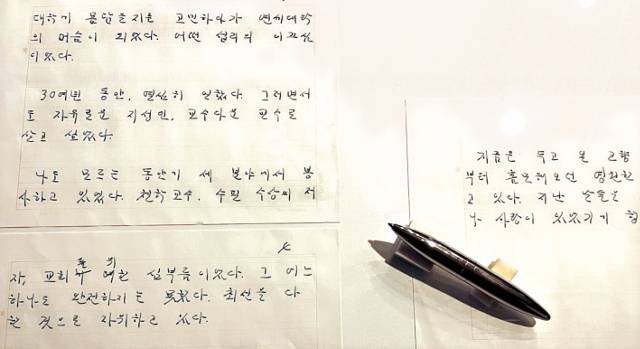 대학가 몸담을지를 고민하다가 연세대학
의 머슴이 되었다. 어떤 섭리의 이끄심
이었다.
30여년 동안, 열심히 일했다. 그러면서
도 자유로운 지성인, 교수다운 교수로
살고 싶었다.
나도 모르는 동안에 세 분야에서 봉
사하고 있었다. 철학교수, 수필 수상의 저
자, 교회 밖의 심부름이었다. 그 어느
하나도 완전하지는 못했다. 최선을 다
한 것으로 자위하고 있다.
지금은 두고 온 고향
부터 휴전선 영원한
고 있다. 지난 날들은
사랑이 있었기기